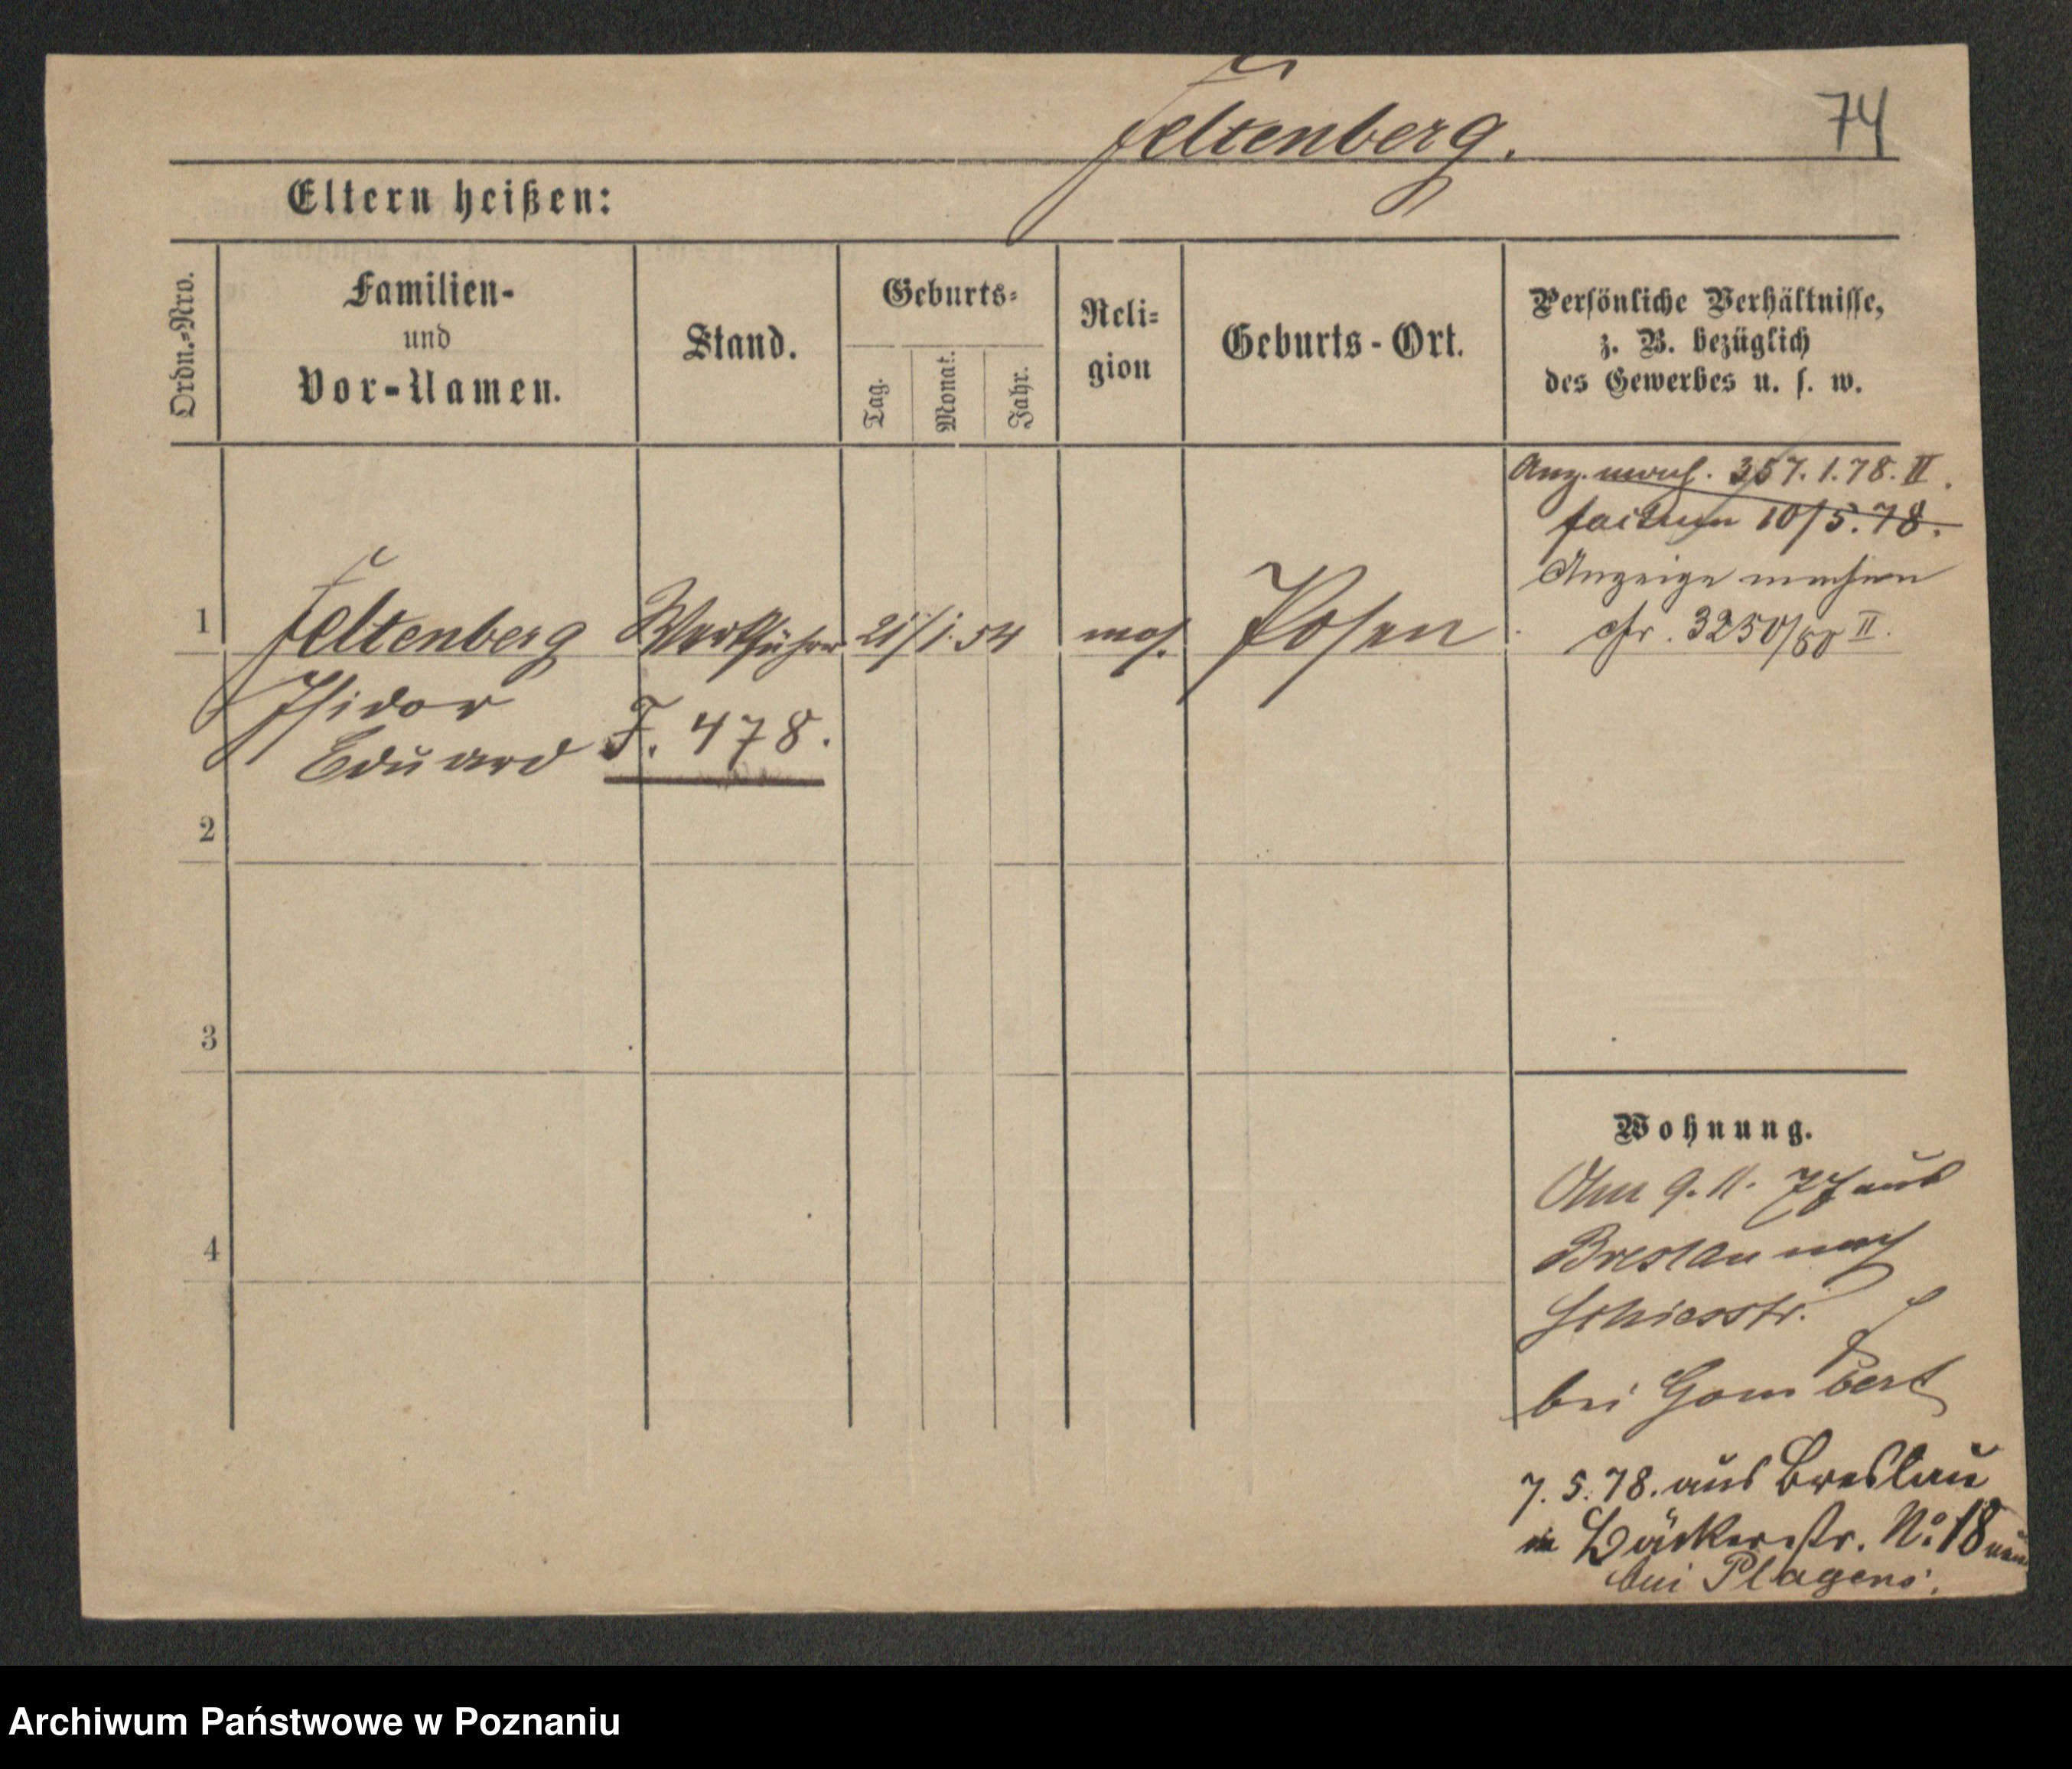 Feltenberg. 74
Eltern heißen:
Ordn.-Nro.
Familien-
und
Vor-Namen.
Stand.
Geburts-
Tag.
Monat.
Jahr.
Reli-
gion
Geburts-Ort.
Persönliche Verhältnisse,
z. B. bezüglich
des Gewerbes u. s. w.
Anz. 357.1.78. II.
factum 10/5.78.
Anzeige machen
cfr. 3250/80 II.
1 Feltenberg Werkführer 21/1.54 mos. Posen
Isidor
Eduard F. 478.
2
3
4
Wohnung.
9.11. 77 aus
Breslau nach
Schiesstr.
bei Gom bert
7.5.78. aus Breslau
Bäckerstr. No 18
bei Plagens.
Archiwum Państwowe w Poznaniu